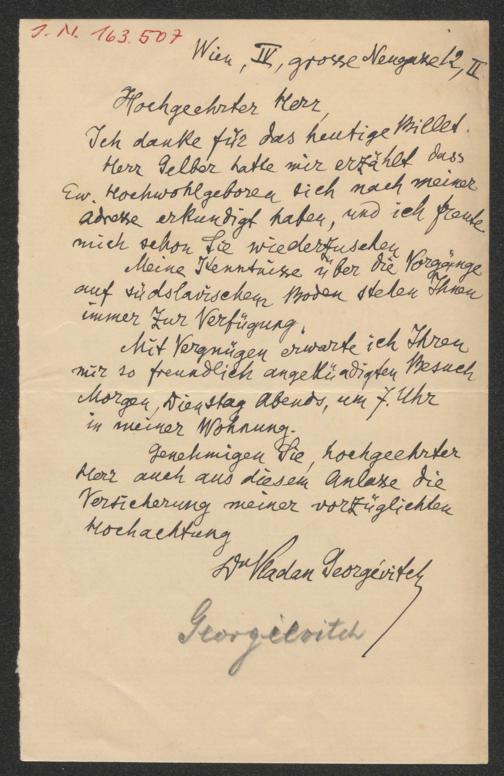 J. N. 163.507
Wien, IV, grosse Neugasse 12, II
Hochgeehrter Herr,
Ich danke für das heutige Billet.
Herr Gelber hatte mir erzählt dass
Ew. Hochwohlgeboren sich nach meiner
Adresse erkundigt haben, und ich freute
mich schon Sie wiederzusehen
Meine Kenntnisse über die Vorgänge
auf südslavischem Boden stehen Ihnen
immer zur Verfügung.
Mit Vergnügen erwarte ich Ihren
mir so freundlich angekündigten Besuch
Morgen, Dienstag Abends, um 7. Uhr
in meiner Wohnung.
Genehmigen Sie, hochgeehrter
Herr auch aus diesem Anlasse die
Versicherung meiner vorzüglichten
Hochachtung
Dr Vladan Georgévitch
Georgievitch